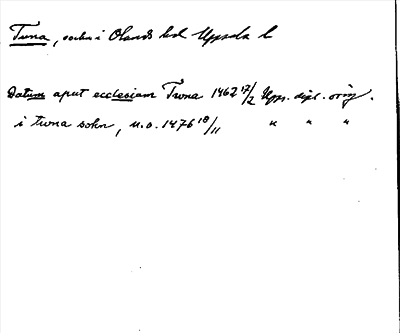 Tuna, socken i Olands hd Uppsala l
Datum aput ecclesiam Twna 1462 17/2 Upps. dipl. orig.
i twna sokn, u.o. 1476 18/11 " " "